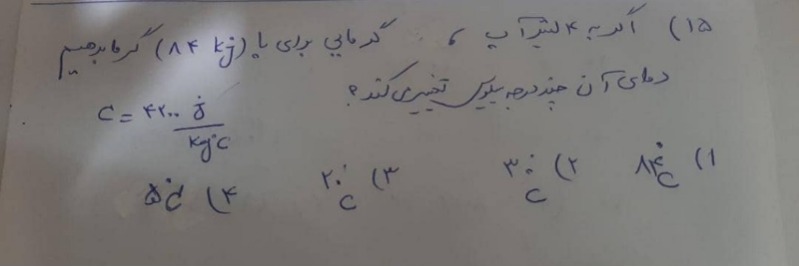 ۱۵) اگر به ۴ لیتر آب ، گرمایی برابر با (۸۴ kj) گرما بدهیم
دمای آن چند درجه سلیوس تغییر می کند؟
C = ۴۲۰۰ j/kg°C
۱) ۸۴°C ۲) ۳۰°C ۳) ۲۰°C ۴) ۵°C